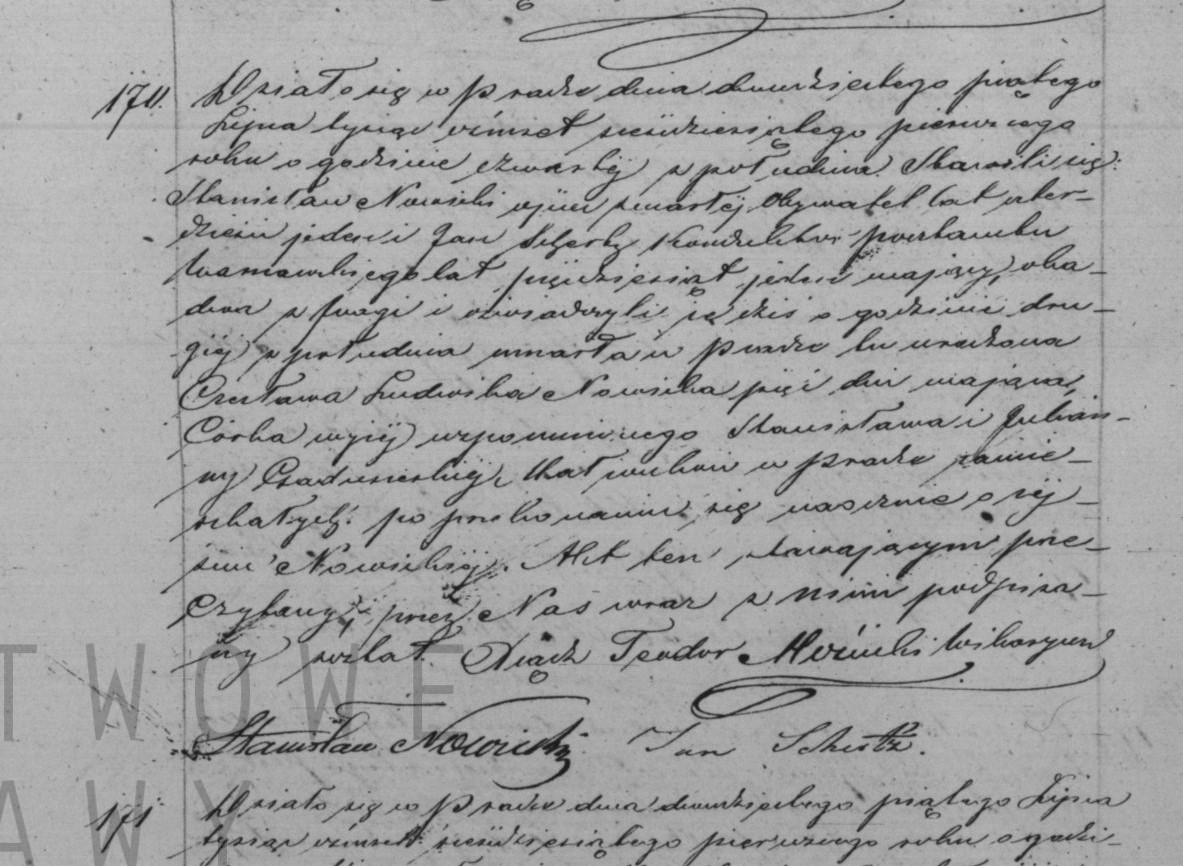 170. Działo się w Pradze dnia dwudziestego piątego
Lipca tysiąc ośmset sześćdziesiątego pierwszego
roku o godzinie czwartej z południa. Stawili się:
Stanisław Nowicki ojciec zmarłej Obywatel lat czter-
dzieści jeden i Jan Konduktor
Warszawskiego lat pięćdziesiąt jeden mający, oba-
dwa z Pragi i oświadczyli iż dziś o godzinie dru-
giej z południa umarła w Pradze tu urodzona
Czesława Ludwika Nowicka pięć dni mająca,
Córka wyżej wspomnionego Stanisława i Julian-
ny małżonków w Pradze zamie-
szkałych. po przekonaniu się naocznie o zej-
ściu Nowickiej. Akt ten stawającym prze-
czytany, przez Nas wraz z nimi podpisa-
ny został. Xiądz Teodor Wikaryusz
Stanisław Nowicki Jan
171 Działo się w Pradze dnia dwudziestego piątego Lipca
tysiąc ośmset sześćdziesiątego pierwszego roku o godzi-
TWOWE
AWY